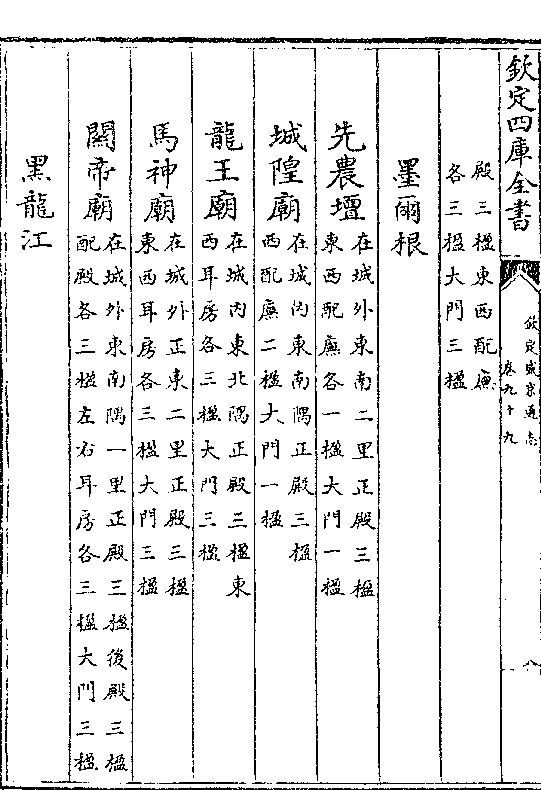 欽定四庫全書
欽定盛京通志
卷九十九
殿三楹東西配廡
各三楹大門三楹
墨爾根
先農壇
在城外東南二里正殿三楹
東西配廡各一楹大門一楹
城隍廟
在城內東南隅正殿三楹
西配廡二楹大門一楹
龍王廟
在城內東北隅正殿三楹東
西耳房各三楹大門三楹
馬神廟
在城外正東二里正殿三楹
東西耳房各三楹大門三楹
關帝廟
在城外東南隅一里正殿三楹後殿三楹
配殿各三楹左右耳房各三楹大門三楹
黑龍江